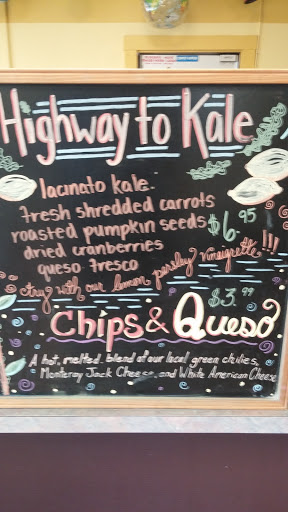 Highway to Kale
lacinato kale.
fresh shredded carrots
roasted pumpkin seeds $6.95
dried cranberries
queso fresco
try with our lemon parsley vinaigrette!!!
$3.99
Chips & Queso
A hot, melted blend of our local green chilies,
Monteray Jack Cheese, and White American Cheese